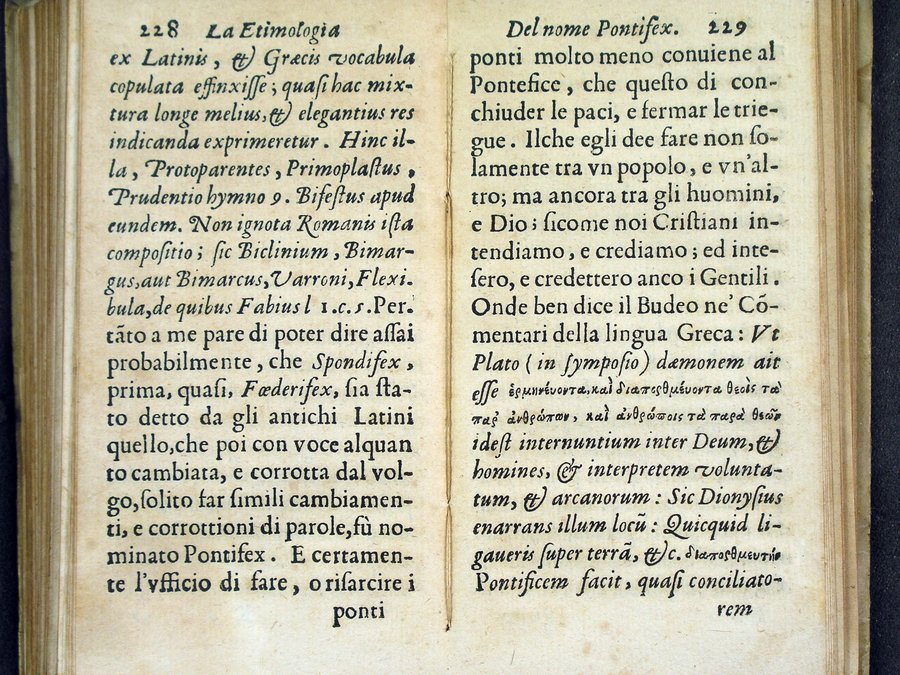 228 La Etimologia
ex Latinis, & Græcis vocabula
copulata effinxiſſe; quaſi hac mix-
tura longe melius, & elegantius res
indicanda exprimeretur. Hinc il-
la, Protoparentes, Primoplaſtus,
Prudentio hymno 9. Bifeſtus apud
eundem. Non ignota Romanis iſta
compoſitio; ſic Biclinium, Bimar-
gus, aut Bimarcus, Varroni, Flexi-
bula, de quibus Fabius l 1.c.5. Per-
tãto a me pare di poter dire aſſai
probabilmente, che Spondifex,
prima, quaſi, Fœderifex, ſia ſta-
to detto da gli antichi Latini
quello, che poi con voce alquan
to cambiata, e corrotta dal vol-
go, ſolito far ſimili cambiamen-
ti, e corrottioni di parole, fù no-
minato Pontifex. E certamen-
te l'vfficio di fare, o riſarcire i
ponti
Del nome Pontifex. 229
ponti molto meno conuiene al
Pontefice, che queſto di con-
chiuder le paci, e fermar le trie-
gue. Ilche egli dee fare non ſo-
lamente tra vn popolo, e vn'al-
tro; ma ancora tra gli huomini,
e Dio; ſicome noi Criſtiani in-
tendiamo, e crediamo; ed inte-
ſero, e credettero anco i Gentili.
Onde ben dice il Budeo ne' Cõ-
mentari della lingua Greca: Vt
Plato (in ſympoſio) dæmonem ait
eſſe ἑρμηνέυοντα, καὶ διαπορθμέυοντα θεοῖς τὰ
παρ' ἀνθρώπων, καὶ ἀνθρώποις τὰ παρὰ θεῶν
ideſt internuntium inter Deum, &
homines, & interpretem volunta-
tum, & arcanorum: Sic Dionyſius
enarrans illum locũ: Quicquid li-
gaueris ſuper terrã, &c. διαπορθμευτὴν
Pontificem facit, quaſi conciliato-
rem